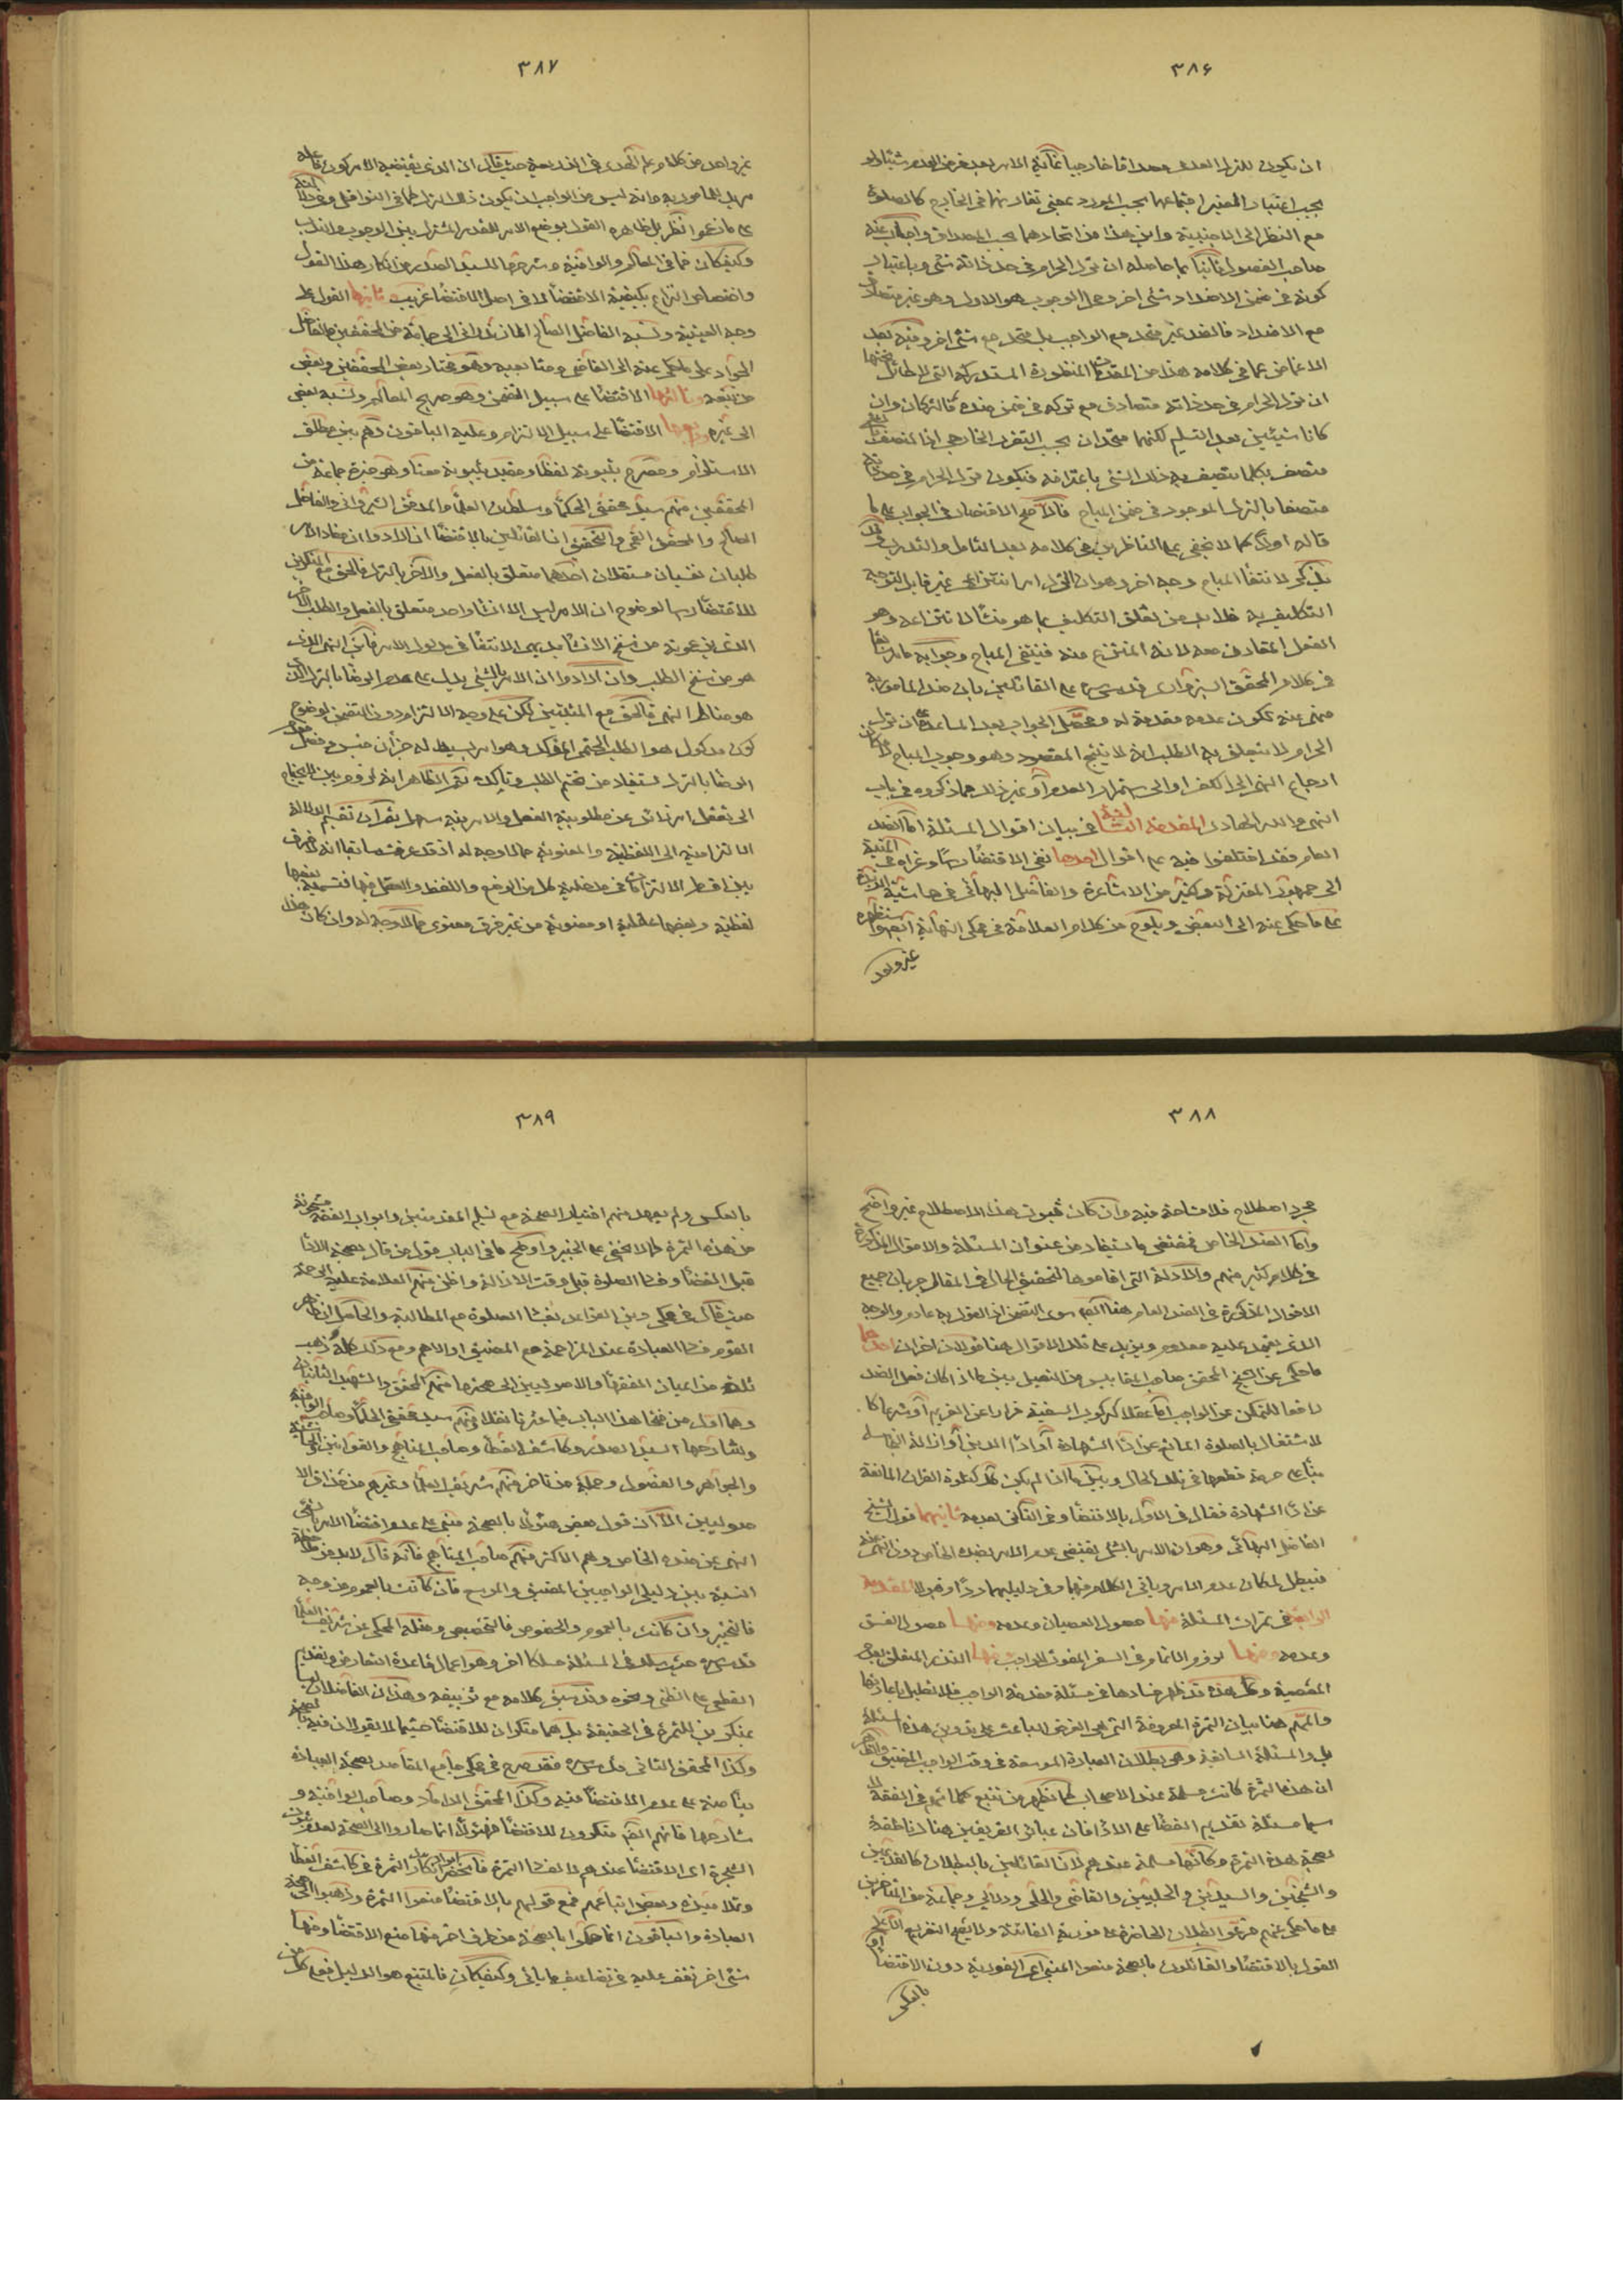 ٣٨۶
ان يكون للترك العدمى مصداقا خارجيا غاية الامر بعد فرض العدم شيئا ولو
بحسب اعتبار المعتبر اجتماعهما بحسب المورد بمعنى تقارنهما فى الخارج كالصلوة
مع النظر الى الاجنبية واين هذا من اتحادهما بحسب المصداق واجاب عنه
صاحب الفصول ثانيا بما حاصله ان ترك الحرام فى حد ذاته شئ وباعتبار
كونه فى ضمن الاضداد شئ اخر ومحل الوجوب هو الاول وهو غير متصادق
مع الاضداد فالضد غير متحد مع الواجب بل متحد مع شئ اخر وفيه بعد
الاغماض عما فى كلامه هذا من المقدمات المنظورة المستدركة التى لا طائل تحتها
ان ترك الحرام فى حد ذاته متصادق مع تركه فى ضمن ضده فالتركان وان
كانا شيئين بعد التسليم لكنهما متحدان بحسب التقرر الخارجى اذ المتصف
متصف بكلما يتصف به ذلك الشئ باعترافه فيكون ترك الحرام فى حد ذاته
متصفا بالترك الموجود فى ضمن المباح فالاصح الاقتصار فى الجواب على ما
قاله اولا كما لا يخفى على الناظرين فى كلامه بعد التامل والتدبر وقد
يذكر لانتفاء المباح وجه اخر وهو ان الترك امر انتزاعى غير قابل لتوجه
التكليف به فلا بد من تعلق التكليف بما هو منشأ لانتزاعه وهو
الفعل المقارن معه لانه المنتزع منه فينتفى المباح وجوابه ما مر سابقا
فى كلام المحقق السبزوارى قدس سره على القائلين بان ضد المامور به
منهى عنه لكون عدمه مقدمة له ومحصل الجواب بعد المساعدة على ان ترك
الحرام لا يتعلق به الطلب انه لا ينتج المقصود وهو وجوب المباح لامكان
ارجاع النهى الى الكف او الى استمرار العدم او غير ذلك مما ذكروه فى باب
النهى والله الهادى المقدمة الثالثة فى بيان اقوال المسئلة اما الضد
العام فقد اختلفوا فيه على اقوال احدها نفى الاقتضاء رأسا وعزاه فى المنية
الى جمهور المعتزلة وكثير من الاشاعرة والفاضل البهائى فى حاشية الزبدة
على ما حكى عنه الى البعض ويلوح من كلام العلامة فى محكى النهاية
غير واحد
٣٨٧
غير واحد من كلام علم الهدى فى الذريعة حيث قال ان الذى يقتضيه الامر كون فاعله
مريدا للمامور به وانه ليس من الواجب ان يكون ذلك الترك كما فى النوافل
على ما زعموا نظر بل ظاهره القول بوضع الامر للقدر المشترك بين الوجوب والندب
وكيف كان فما فى المعالم والوافية وشرحها للسيد الصدر من انكار هذا القول
واختصاص النزاع بكيفية الاقتضاء لا فى اصل الاقتضاء غريب ثانيها القول على
وجه العينية ونسبه الفاضل الصالح المازندرانى الى جماعة من المحققين والفاضل
الجواد على ما حكى عنه الى القاضى ومتابعيه وهو مختار بعض المحققين وبعض
من تبعه وثالثها الاقتضاء على سبيل التضمن وهو صريح المعالم ونسبه بعض
الى غيره ورابعها الاقتضاء على سبيل الالتزام وعليه الباقون وهم بين مطلق
الاستلزام ومصرح بثبوته لفظا ومقيد بثبوته معنا وهو خيرة جماعة من
المحققين منهم سيد محققى الحكماء وسلطان العلماء والمدقق الشيروانى والفاضل
الصالح والمحقق القمى والتحقيق ان القائلين بالاقتضاء ان ارادوا ان مفاد الامر
طلبان نفسيان مستقلان احدهما متعلق بالفعل والاخر بالترك فالحق مع المنكرين
للاقتضاء رأسا لوضوح ان الامر ليس الا انشاء واحد متعلق بالفعل والطلب الاخر
الذى يدعونه من سنخ الانشاء بديهى الانتفاء فى مدلول الامر فاين النهى الذى
هو من سنخ الطلب وان ارادوا ان الامر بالشئ يدل على عدم الرضا بالترك الذى
هو مناط النهى فالحق مع المثبتين لكن على وجه الالتزام دون التضمن لوضوح
كون مدلول هو الطلب الحتمى المؤكد وهو امر بسيط له جزءان جنس وفصل فعدم
الرضا بالترك مستفاد من تحتم الطلب وتاكده ثم الظاهر انه لزوم بين لا يحتاج
الى تعقل امر زائد عن مطلوبية الفعل والامر فيه سهل بقى ان تقسيم الدلالة
الالتزامية الى اللفظية والمعنوية مما لا وجه له اذ قد عرفت سابقا انه لا فرق
بين اقسام الالتزامات فى مدخلية كل من الوضع واللفظ والعقل فيها فتسمية بعضها
لفظية وبعضها عقلية او معنوية من غير فرق معنوى مما لا وجه له وان كان هذا
٣٨٨
مجرد اصطلاح فلا مشاحة فيه وان كان ثبوت هذا الاصطلاح غير واضح
واما الضد الخاص فمقتضى ما يستفاد من عنوان المسئلة والاقوال المذكورة
فى كلام كثير منهم والادلة التى اقاموها لتحقيق الحال فى المقال جريان جميع
الاقوال المذكورة فى الضد العام هنا ايضا سوى التضمن اذ القول به عادم والوجه
الذى يعتمد عليه معدوم ويزيد على تلك الاقوال هنا قولان اخران احدهما
ما حكى عن الشيخ المحقق صاحب المقابيس من التفصيل بين ما اذا كان فعل الضد
رافعا للتمكن عن الواجب اما عقلا كركوب السفينة فرارا عن الغريم او شرعا كا
لاشتغال بالصلوة المانع عن اداء الشهادة او اداء الدين او ازالة النجاسة
بناء على حرمة قطعها فى تلك الحال وبين ما اذا لم يكن كذلك كتلاوة القران المانعة
عن اداء الشهادة فقال فى الاول بالاقتضاء وفى الثانى بعدمه ثانيهما قول الشيخ
الفاضل البهائى وهو ان الامر بالشئ يقتضى عدم الامر بضده الخاص دون النهى عنه
فيبطل لمكان عدم الامر وياتى الكلام فيهما وفى دليليهما ردا وقبولا المقدمة
الرابعة فى ثمرات المسئلة منها حصول العصيان وعدمه ومنها حصول الفسق
وعدمه ومنها لزوم الاتمام فى السفر المفوت للواجب ومنها النذر المتعلق بعدم
المعصية وكل هذه قد ظهر فسادها فى مسئلة مقدمة الواجب فلا نطيل باعادتها
والمهم هنا بيان الثمرة المعروفة التى هى الغرض الباعث على تدوين هذه المسئلة
بل والمسئلة السابقة وهى بطلان العبادة الموسعة فى وقت الواجب المضيق والظاهر
ان هذه الثمرة كانت مسلمة عند الاصحاب كما يظهر من تتبع كلماتهم فى الفقه لا
سيما مسئلة تقديم القضاء على الاداء فان عبائر الفريقين هناك ناطقة
بصحة هذه الثمرة وكانها مسلمة عندهم لان القائلين بالبطلان كالقديمين
والشيخين والسيدين والحلبيين والقاضى والحلى وديلمى وجماعة من المتاخرين
على ما حكى عنهم فرعوا البطلان للحاضرة على فورية الفائتة ولا يصح التفريع الا على
القول بالاقتضاء والقائلون بالصحة منعوا المبنى اعنى الفورية دون الاقتضاء او
بالعكس
٣٨٩
بالعكس ولم يعهد منهم اختيار الصحة مع تسليم المقدمتين وابواب الفقه مشحونة
من هذه الثمرة كما لا يخفى على الخبير واوضح ما فى الباب قول من قال بصحة الاداء
قبل القضاء وفساد الصلوة قبل وقت الازالة واظن منهم العلامة عليه الرحمة
حيث قال فى محكى دين القواعد بفساد الصلوة مع المطالبة والحاصل ان ظاهر
القوم فساد العبادة عند المزاحمة مع المضيق او الاهم ومع ذلك كله ذهب
ثلة من اعيان الفقهاء والاصوليين الى صحتها منهم المحقق والشهيد الثانيان
وهما اول من فتحا هذا الباب فيما عثرنا نقلا ومنهم سيد محققى الحكماء وصاحب الوافية
وشارحها السيد الصدر وكاشف الغطاء وصاحب المناهج والقوانين والحاشية
والجواهر والفصول وجملة من تاخر منهم شريف العلماء وغيرهم من حذاق الا
صوليين الا ان قول بعض هؤلاء بالصحة مبنى على عدم اقتضاء الامر بالشئ
النهى عن ضده الخاص وهم الاكثر منهم صاحب المناهج فانه قال لابد من ملاحظة
النسبة بين دليلى الواجبين المضيق والموسع فان كانت بالعموم من وجه
فالتخيير وان كانت بالعموم والخصوص فالتخصيص ومثله المحكى عن شريف العلماء
قدس سره حيث سلك فى المسئلة مسلكا اخر وهو اعمال قاعدة التعارض وتقديم
القطعى على الظنى ونحوه وقد سبق كلامه مع تزييفه وهذان الفاضلان ليسا
بمنكرين للثمرة فى الحقيقة بل هما منكران للاقتضاء حيثما لا يقولان فيه بالصحة
وكذا المحقق الثانى قدس سره فقد صرح فى محكى جامع المقاصد بصحة العبادة
بناء منه على عدم الاقتضاء فيه وكذا المحقق الداماد وصاحب الوافية و
شارحها فانهم ايضا منكرون للاقتضاء فهؤلاء انما صاروا الى الصحة لعدم ثبوت
الشجرة اعنى الاقتضاء عندهم لا لفساد الثمرة فانحصر انكار الثمرة فى كاشف الغطاء
وتلاميذه وبعض اتباعهم فمع قولهم بالاقتضاء منعوا الثمرة وذهبوا الى صحة
العبادة والباقون انما حكموا بالصحة من طرف اخر منها منع الاقتضاء ومنها
شئ اخر نقف عليه فى تضاعيف ما ياتى وكيف كان فالمتبع هو الدليل فعن كل من